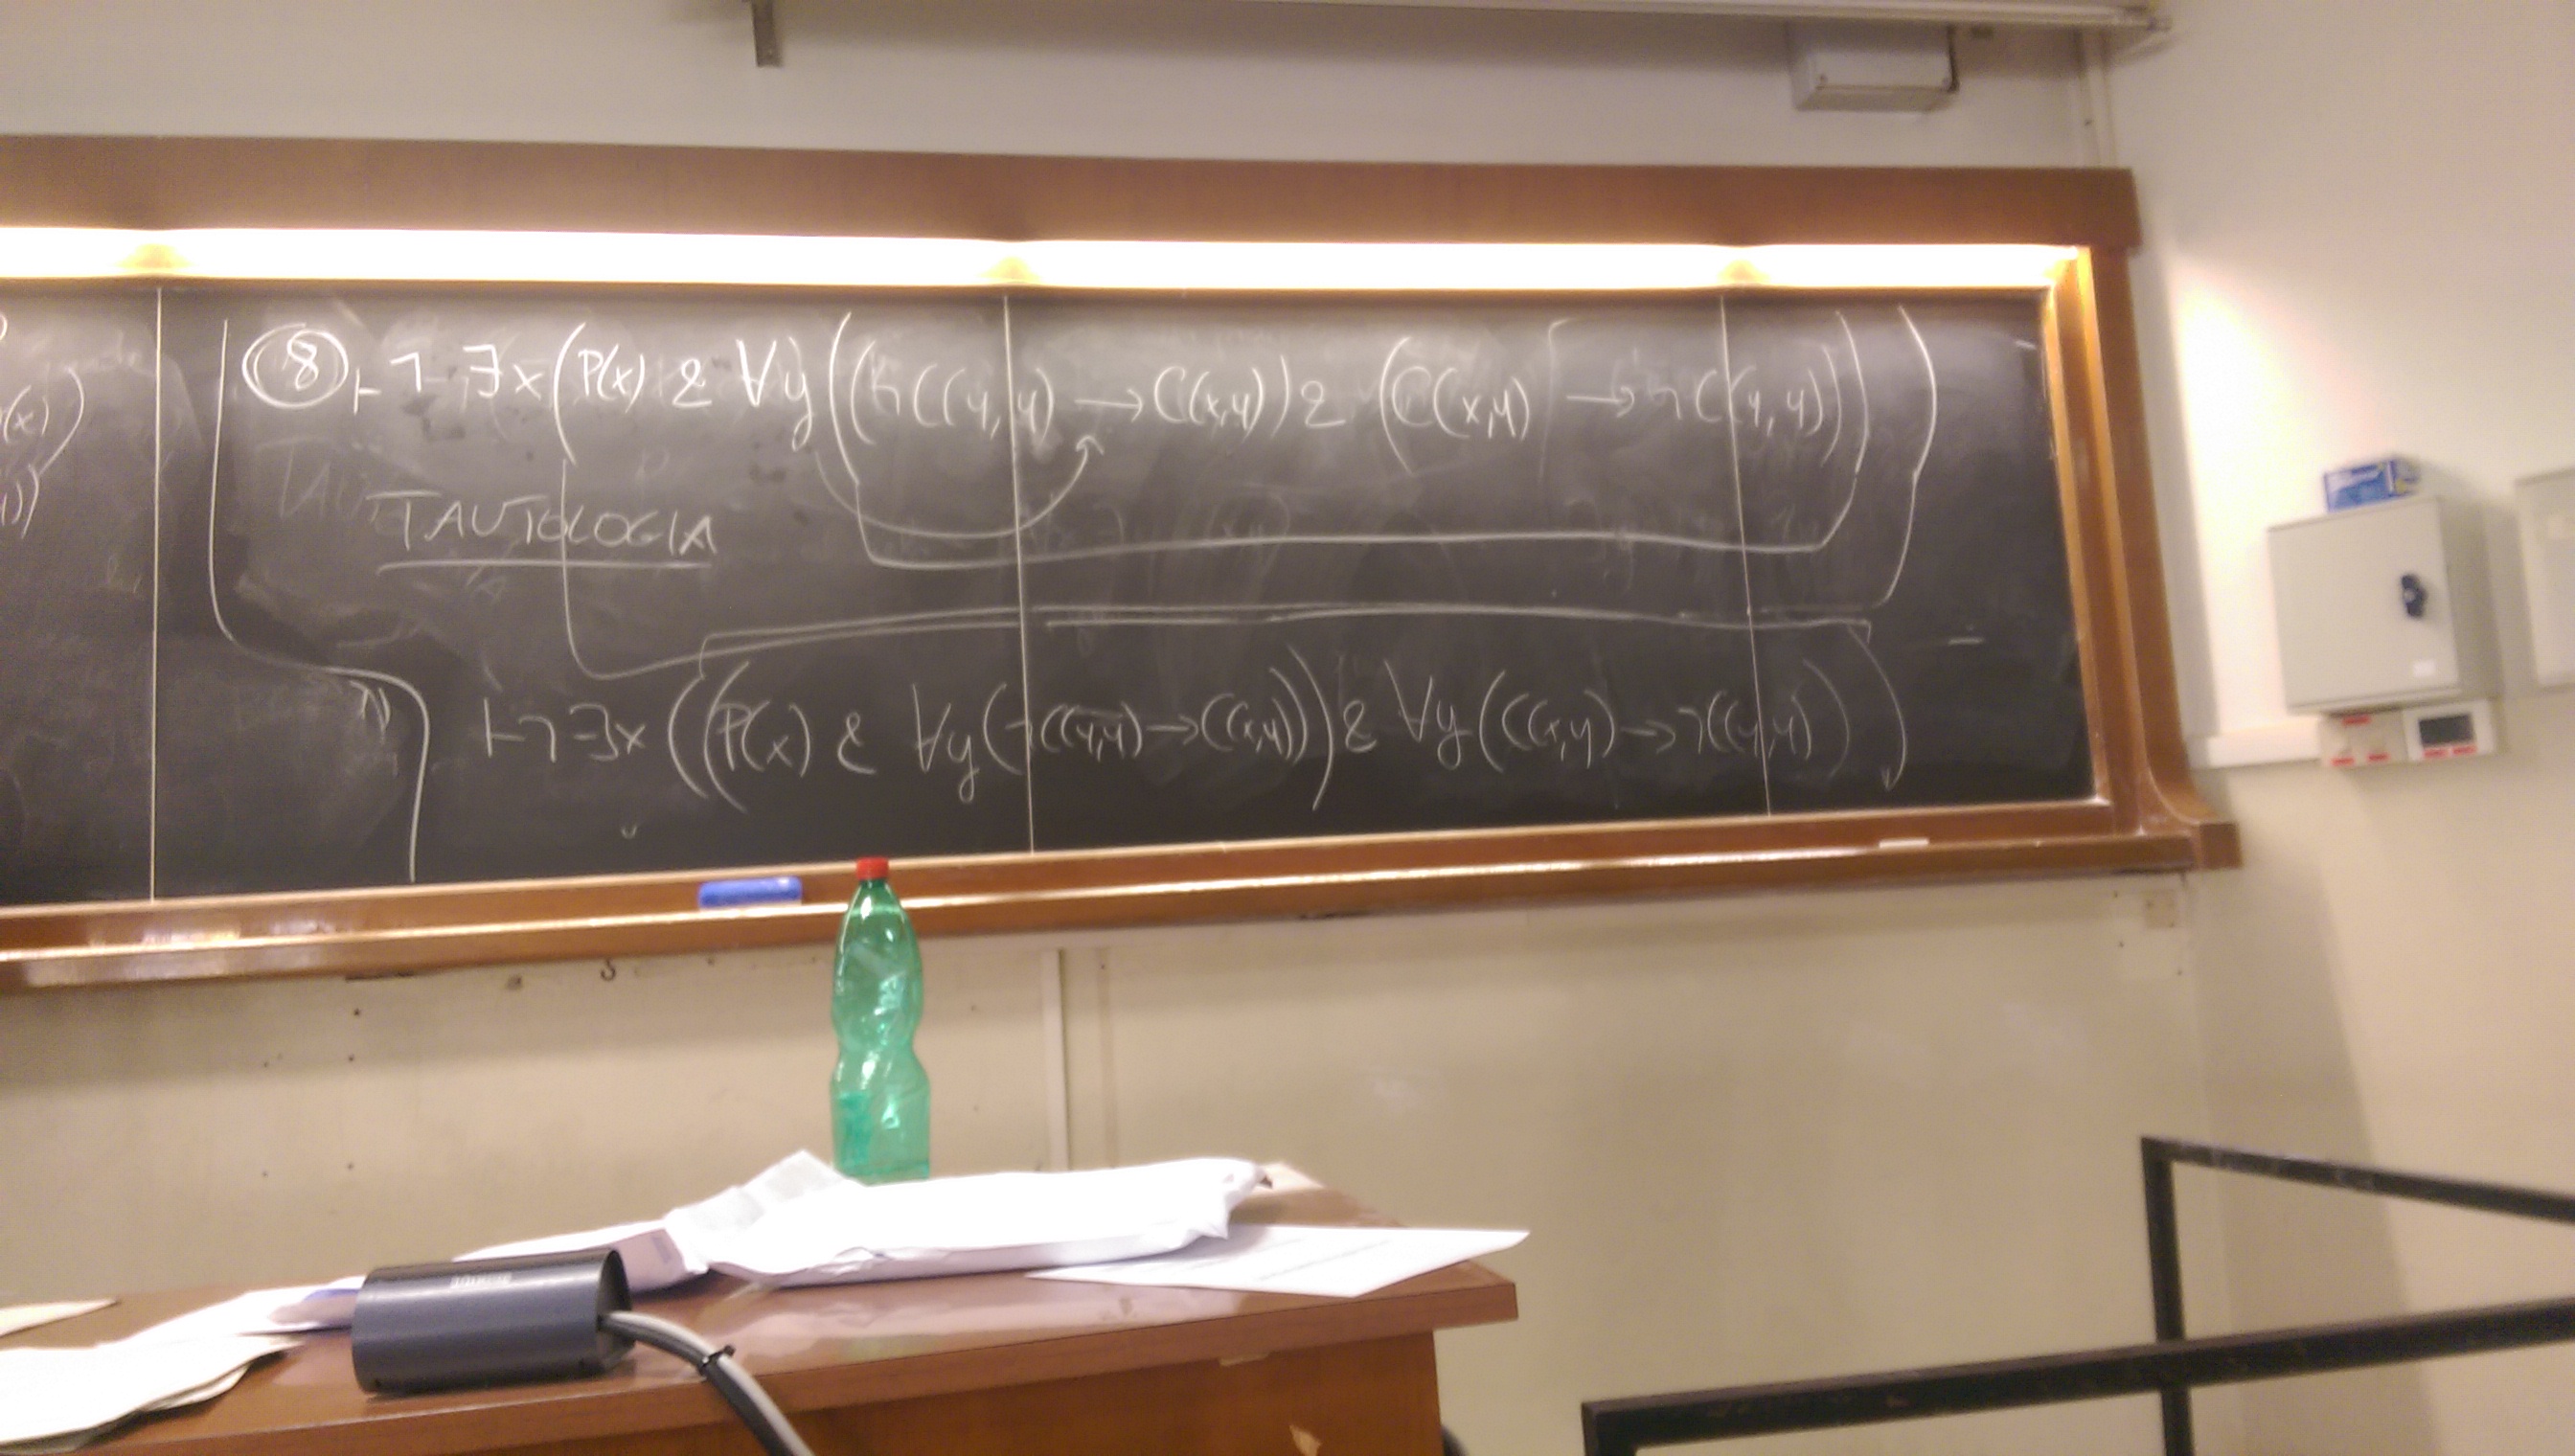 (x))
⑧ ⊢ ¬∃x(P(x) & ∀y((¬C(y,y) → C(x,y)) & (C(x,y) → ¬C(y,y))))
TAUTOLOGIA
⊢ ¬∃x((P(x) & ∀y(¬C(y,y) → C(x,y))) & ∀y(C(x,y) → ¬C(y,y)))